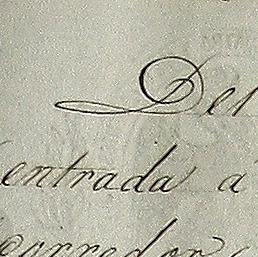 Del
entrada á
corredor